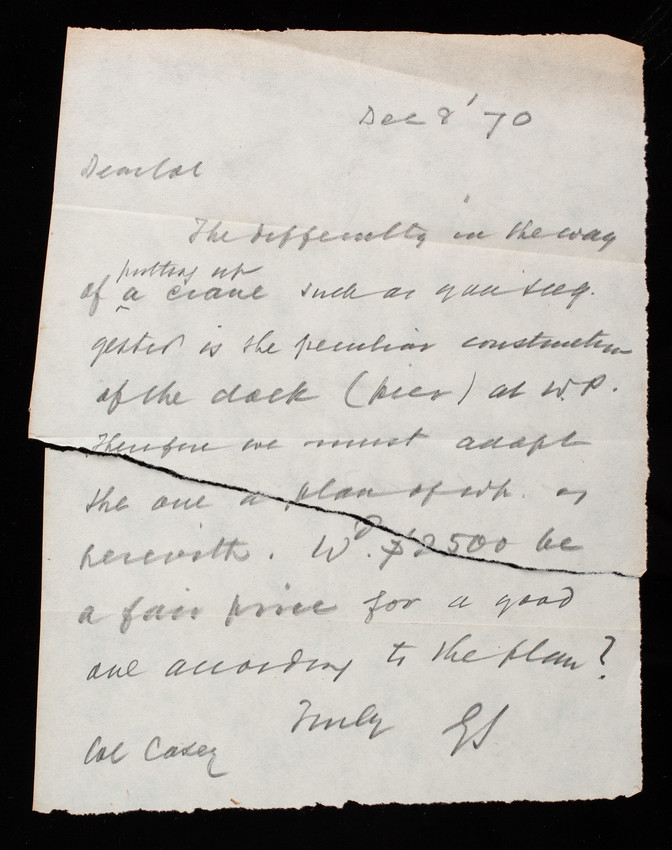 Dec 8' 70
Dear Col
The difficulty in the way
putting up
of a crane such as you sug-
gested is the peculiar construction
of the dock (pier) at W.P.
Therefore we must adopt
the one a plan of wh. is
herewith. Wd. $2500 be
a fair price for a good
one according to the plan?
Truly GS
Col Casey